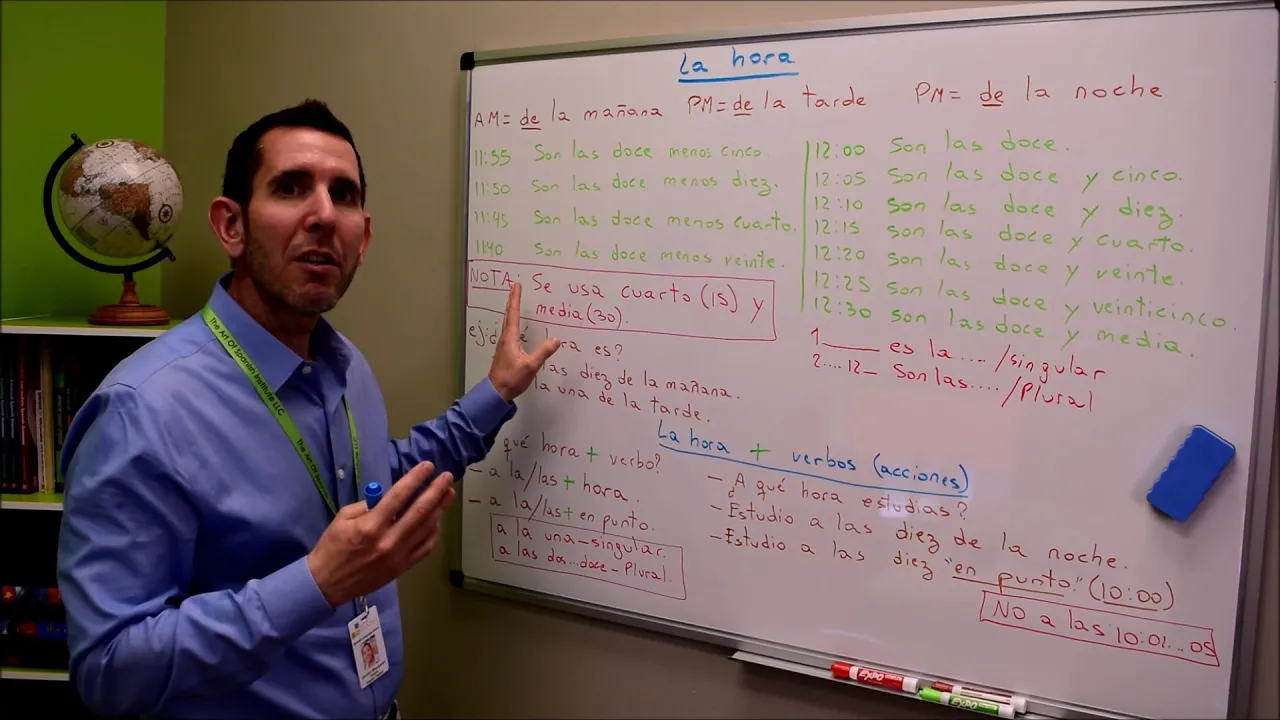 La hora
AM= de la mañana PM= de la tarde PM= de la noche
11:55 Son las doce menos cinco.
11:50 Son las doce menos diez.
11:45 Son las doce menos cuarto.
1140 Son las doce menos veinte.
12:00 Son las doce.
12:05 Son las doce y cinco.
12:10 Son las doce y diez.
12:15 Son las doce y cuarto.
12:20 Son las doce y veinte.
12:25 Son las doce y veinticinco.
12:30 son las doce y media.
NOTA: Se usa cuarto (15) y
media (30).
1____ es la.... /singular
2....12_ Son las.... /Plural
ej: hora es?
las diez de la mañana.
la una de la tarde.
qué hora + verbo?
- a la/las + hora.
- a la/las + en punto.
a la una - singular.
a las dos...doce - Plural.
La hora + verbos (acciones)
- ¿A qué hora estudias?
- Estudio a las diez de la noche.
- Estudio a las diez "en punto" (10:00)
NO a las 10:01...05
The Art Of Spanish Institute LLC
The Art Of
EXPO
EXPO